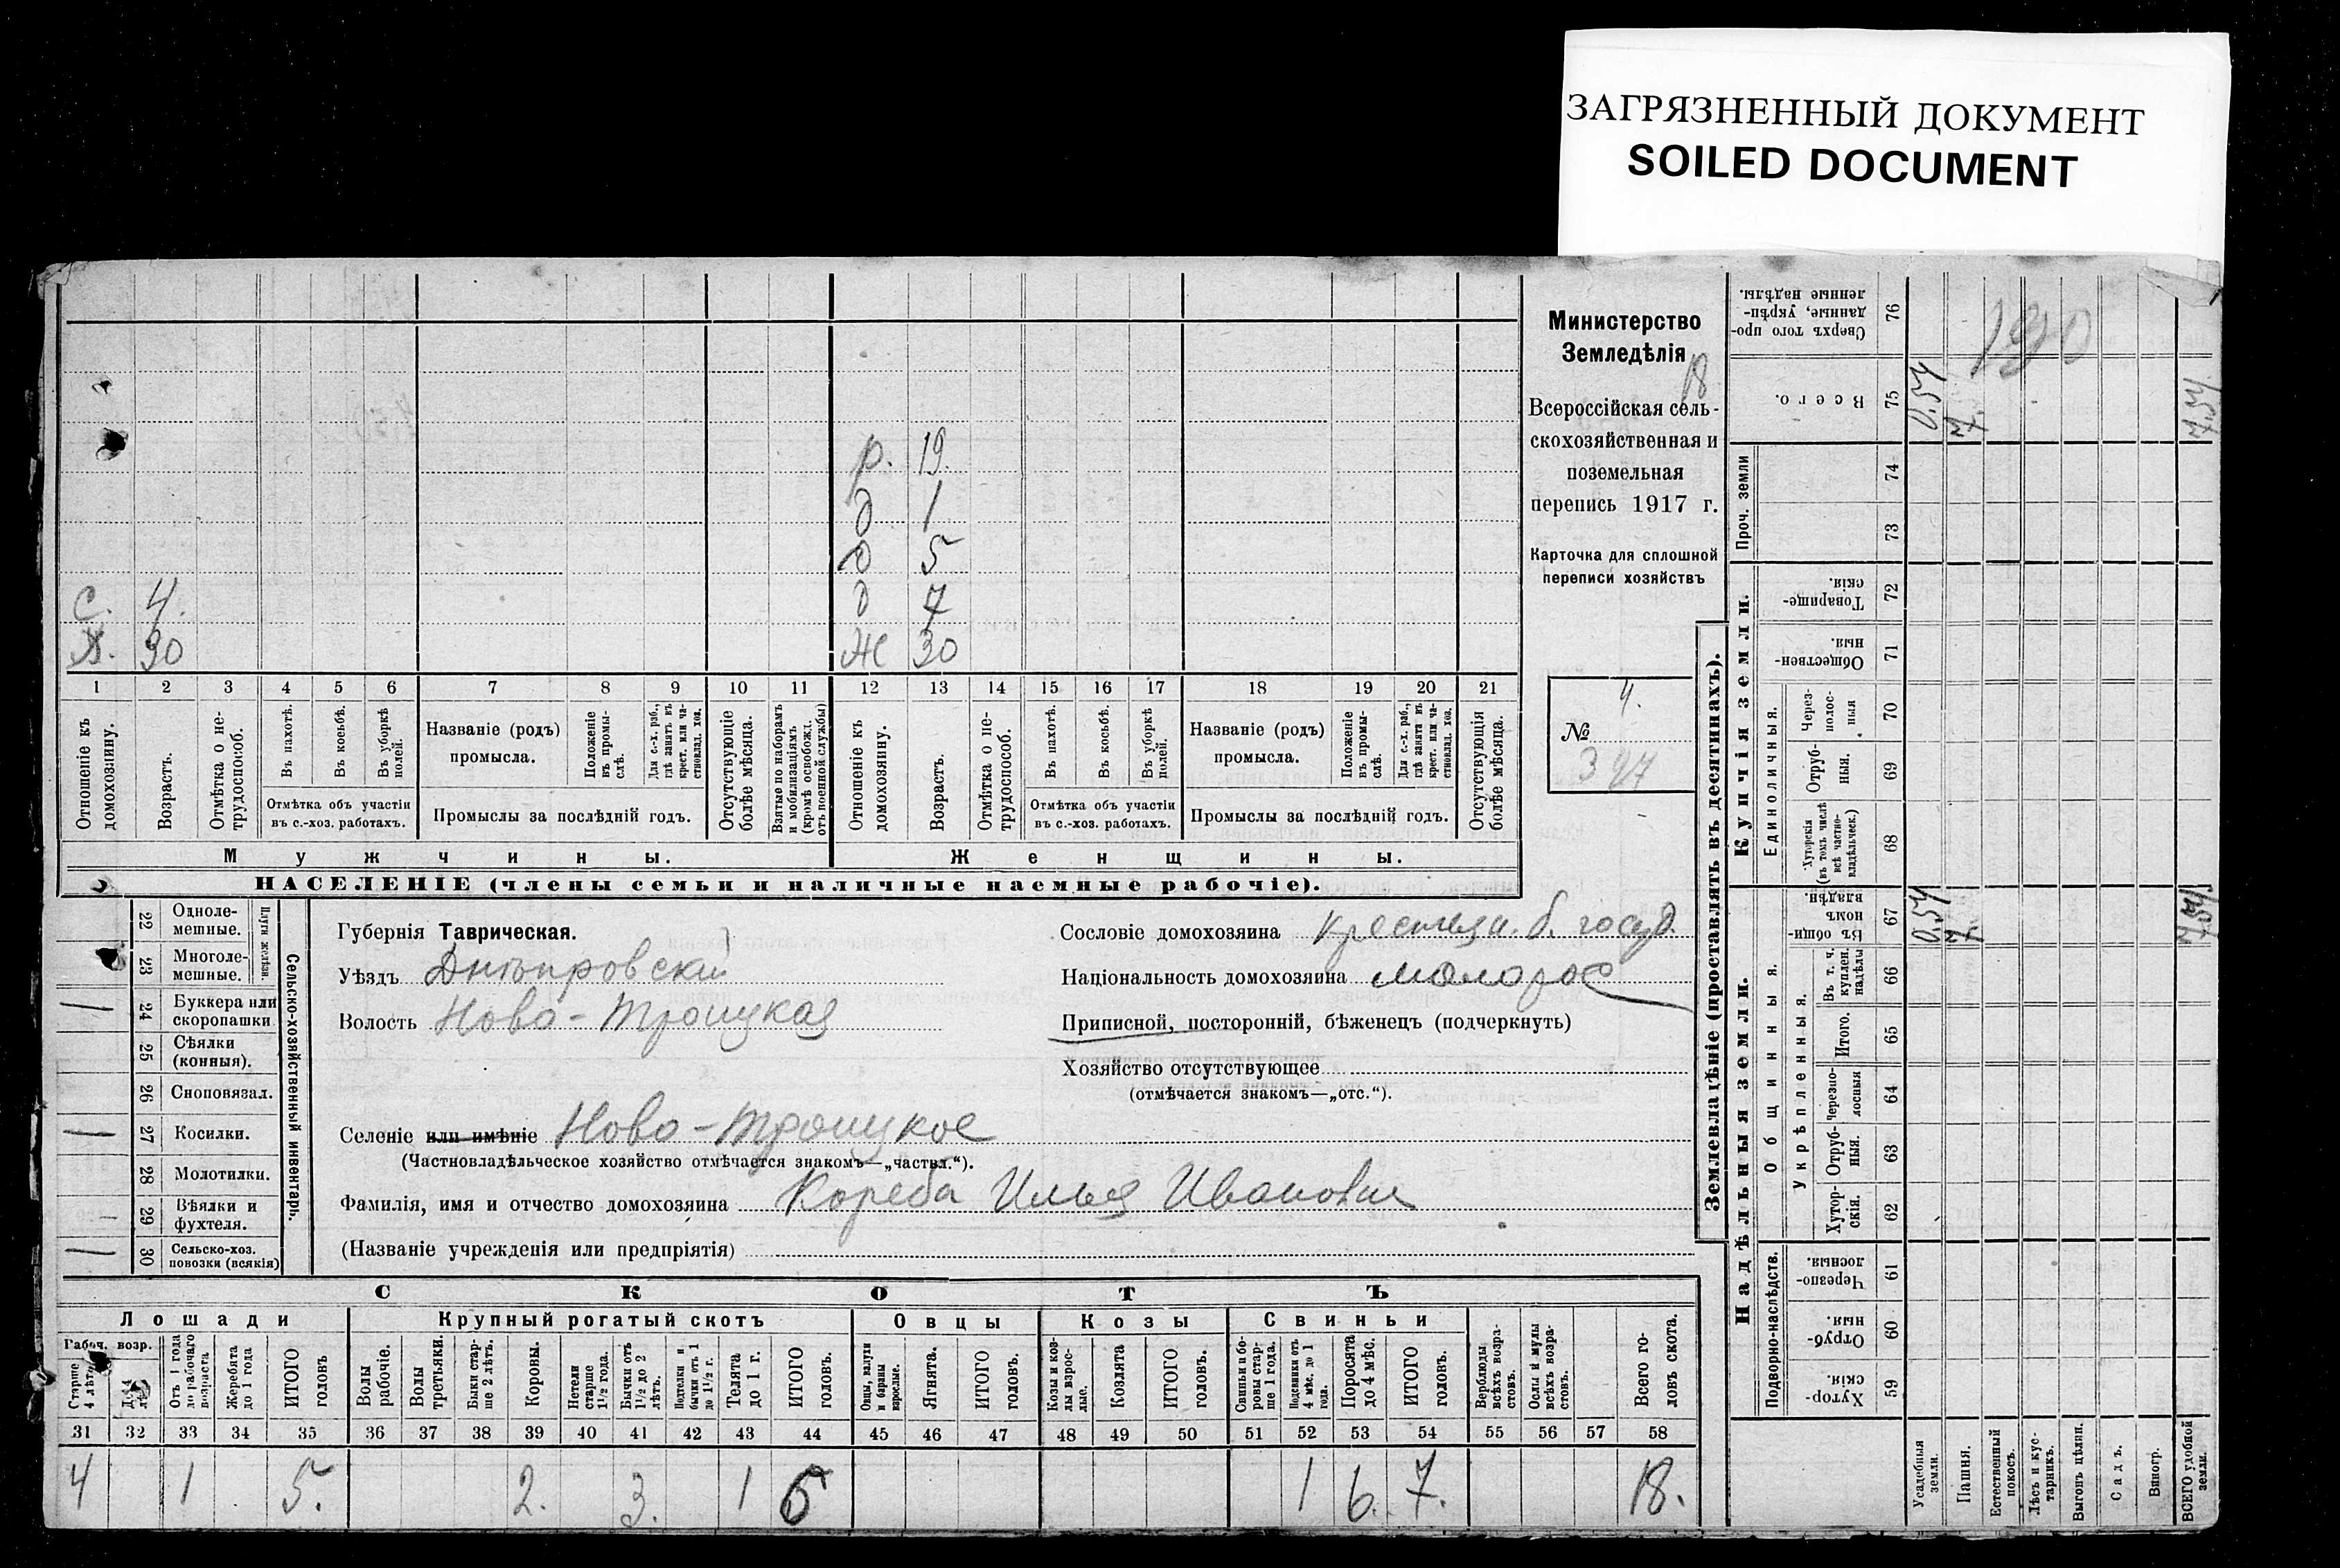 ЗАГРЯЗНЕННЫЙ ДОКУМЕНТ
SOILED DOCUMENT
Министерство
Земледѣлія
18
Всероссійская сель-
скохозяйственная и
поземельная
перепись 1917 г.
Карточка для сплошной
переписи хозяйствъ
4.
№
327
р. 19.
д 1
д 5
с. 4. д 7
Х. 30 Ж 30
1 2 3 4 5 6 7 8 9 10 11 12 13 14 15 16 17 18 19 20 21
Отношеніе къ домохозяину.
Возрастъ.
Отмѣтка о не-трудоспособ.
Въ пахотѣ.
Въ косьбѣ.
Въ уборкѣ полей.
Отмѣтка объ участіи
въ с.-хоз. работахъ.
Названіе (родъ)
промысла.
Положеніе въ промы-слѣ.
Для с.-х. раб., гдѣ занятъ въ крест. или ча-стновлад. хоз.
Промыслы за послѣдній годъ.
Отсутствующіе болѣе мѣсяца.
Взятые по наборамъ и мобилизаціямъ (кромѣ освобожд. отъ военной службы)
Отношеніе къ домохозяину.
Возрастъ.
Отмѣтка о не-трудоспособ.
Въ пахотѣ.
Въ косьбѣ.
Въ уборкѣ полей.
Отмѣтка объ участіи
въ с.-хоз. работахъ.
Названіе (родъ)
промысла.
Положеніе въ промы-слѣ.
Для с.-х. раб., гдѣ занята въ крест. или ча-стновлад. хоз.
Промыслы за послѣдній годъ.
Отсутствующія болѣе мѣсяца.
Мужчины.
Женщины.
НАСЕЛЕНІЕ (члены семьи и наличные наемные рабочіе).
Сельско-хозяйственный инвентарь.
Плуги желѣзн.
22 Одноле-мешные.
23 Многоле-мешные.
— 24 Буккера или скоропашки
25 Сѣялки (конныя).
26 Сноповязал.
— 27 Косилки.
28 Молотилки.
— 29 Вѣялки и фухтеля.
— 30 Сельско-хоз. повозки (всякія)
Губернія Таврическая.
Уѣздъ Днѣпровскій
Волость Ново-Троицкая
Сословіе домохозяина крестьян. б. госуд.
Національность домохозяина малорос
Приписной, посторонній, бѣженецъ (подчеркнуть)
Хозяйство отсутствующее
(отмѣчается знакомъ—„отс.“).
Селеніе или имѣніе Ново-Троицкое
(Частновладѣльческое хозяйство отмѣчается знакомъ—„частвл.“).
Фамилія, имя и отчество домохозяина Кореба Илья Иванович
(Названіе учрежденія или предпріятія)
СКОТЪ
Лошади
Крупный рогатый скотъ
Овцы
Козы
Свиньи
Рабоч. возр.
Старше 4 лѣтъ
Отъ 1 года до рабочаго возраста
Жеребята до 1 года
ИТОГО головъ
Волы рабочіе.
Волы третьяки.
Быки стар-ше 2 лѣтъ.
Коровы.
Нетели старше 1½ года.
Бычки отъ 1½ до 2 лѣтъ.
Подтелки и бычки отъ 1 до 1½ г.
Телята до 1 г.
ИТОГО головъ.
Овцы, валухи и бараны взрослые.
Ягнята.
ИТОГО головъ.
Козы и коз-лы взрос-лые.
Козлята
ИТОГО головъ.
Свиньи и бо-ровы стар-ше 1 года.
Подсвинки отъ 4 мѣс. до 1 года.
Поросята до 4 мѣс.
ИТОГО головъ.
Верблюды всѣхъ возра-стовъ.
Ослы и мулы всѣхъ возра-стовъ.
Всего го-ловъ скота.
31 32 33 34 35 36 37 38 39 40 41 42 43 44 45 46 47 48 49 50 51 52 53 54 55 56 57 58
4 1 5. 2. 3. 1 6 1 6. 7. 18.
Землевладѣніе (проставлять въ десятинахъ).
Надѣльныя земли.
Купчія земли.
Проч. земли
Подворно-наслѣдств.
Общинныя.
Укрѣпленныя.
Единоличныя.
Сверхъ того про-данные, укрѣп-ленные надѣлы. 76
Всего. 75
74
73
Товарище-скія. 72
Обществен-ныя 71
Через-полос-ныя 70
Отруб-ныя. 69
Хуторскія (въ томъ числѣ всѣ частно-владѣльческ.) 68
Въ общи-номъ владѣн. 67
Въ т. ч. куплен. надѣлы 66
Итого. 65
Черезпо-лосныя 64
Отруб-ныя. 63
Хутор-скія. 62
Черезпо-лосныя 61
Отруб-ныя. 60
Хутор-скія. 59
Усадебныя земли.
Пашня.
Естественный покосъ.
Лѣсъ и кус-тарникъ.
Выгонъ цѣлин.
Садъ.
Виногр.
ВСЕГО удобной земли.
0.54 7. 7.54
0.54 7. 7.54